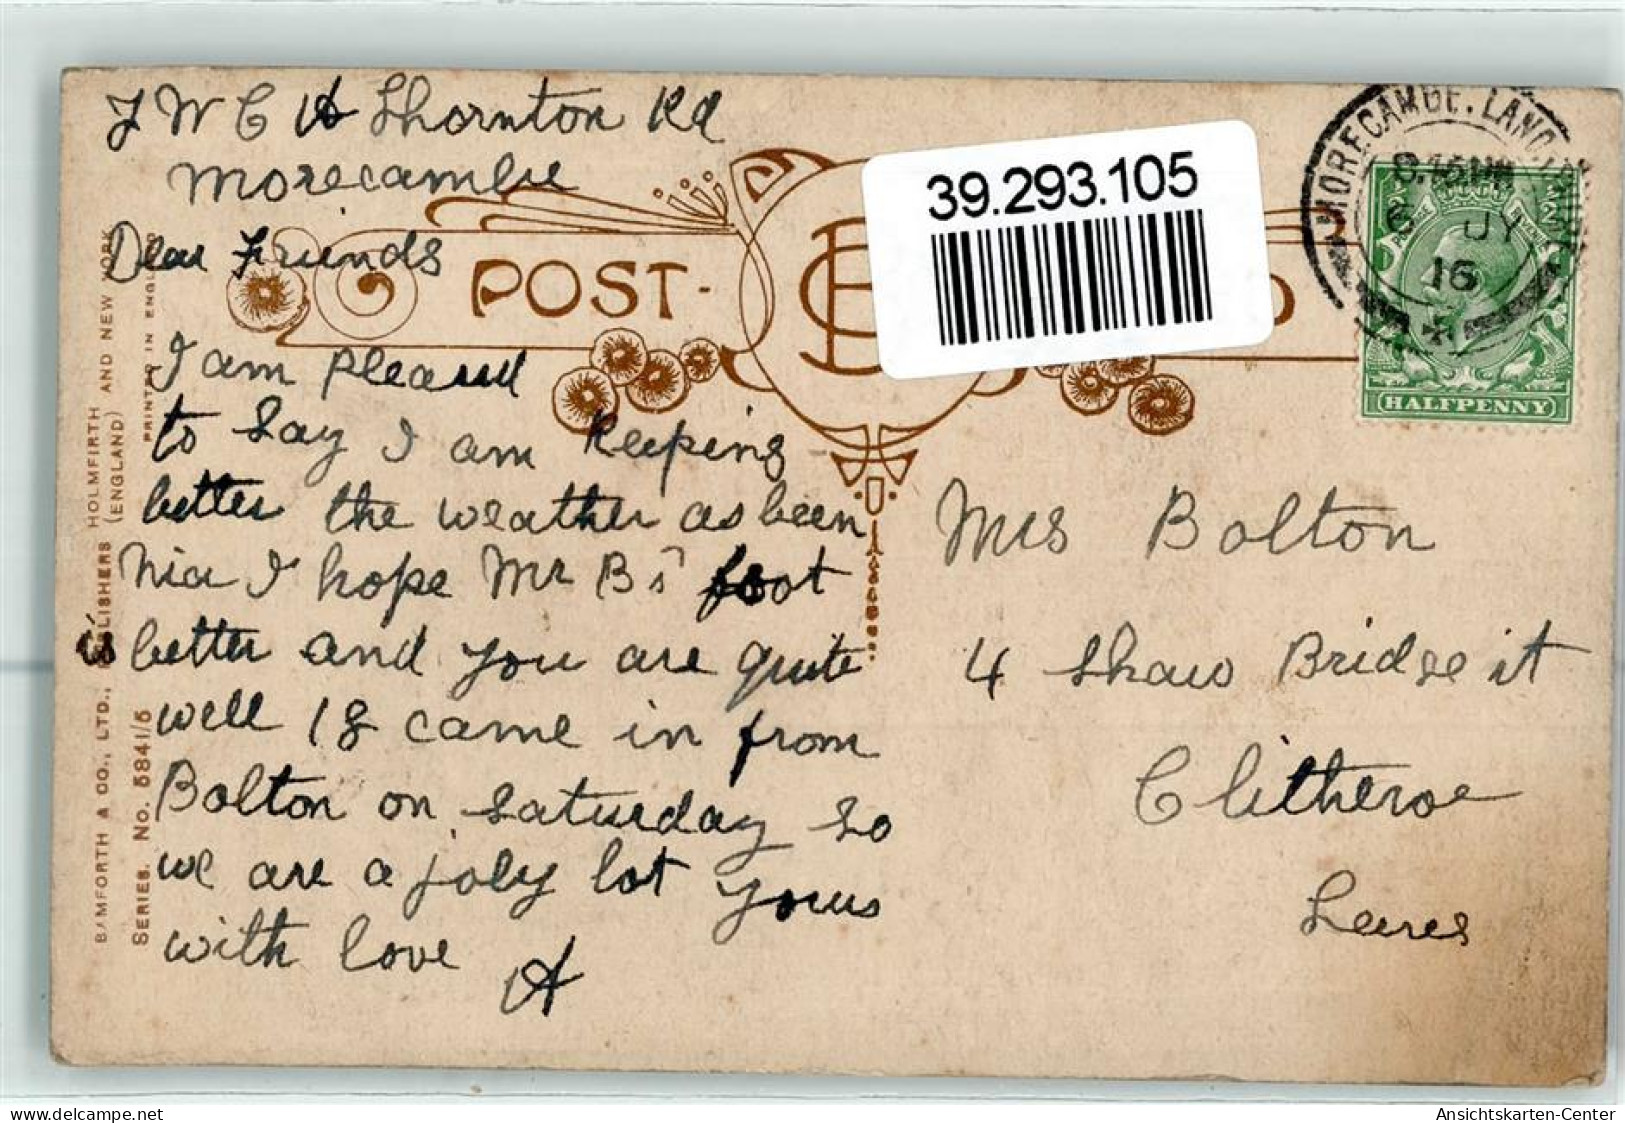 Y W C A Thornton Rd
Morecambe
Dear Friends
I am pleasud
to say I am keeping
better the weather as been
nice I hope Mr B's foot
is better and you are quite
well 18 came in from
Bolton on saturday so
we are a joly lot yours
with love A
POST-
39.293.105
MORECAMBE. LANC
8.15 PM
6 JY
16
HALFPENNY
Mrs Bolton
4 Shaw Bridge st
Clitheroe
Lancs
BAMFORTH & CO., LTD., PUBLISHERS HOLMFIRTH AND NEW YORK
(ENGLAND)
SERIES. No. 5841/5
PRINTED IN ENGLAND
Ansichtskarten-Center